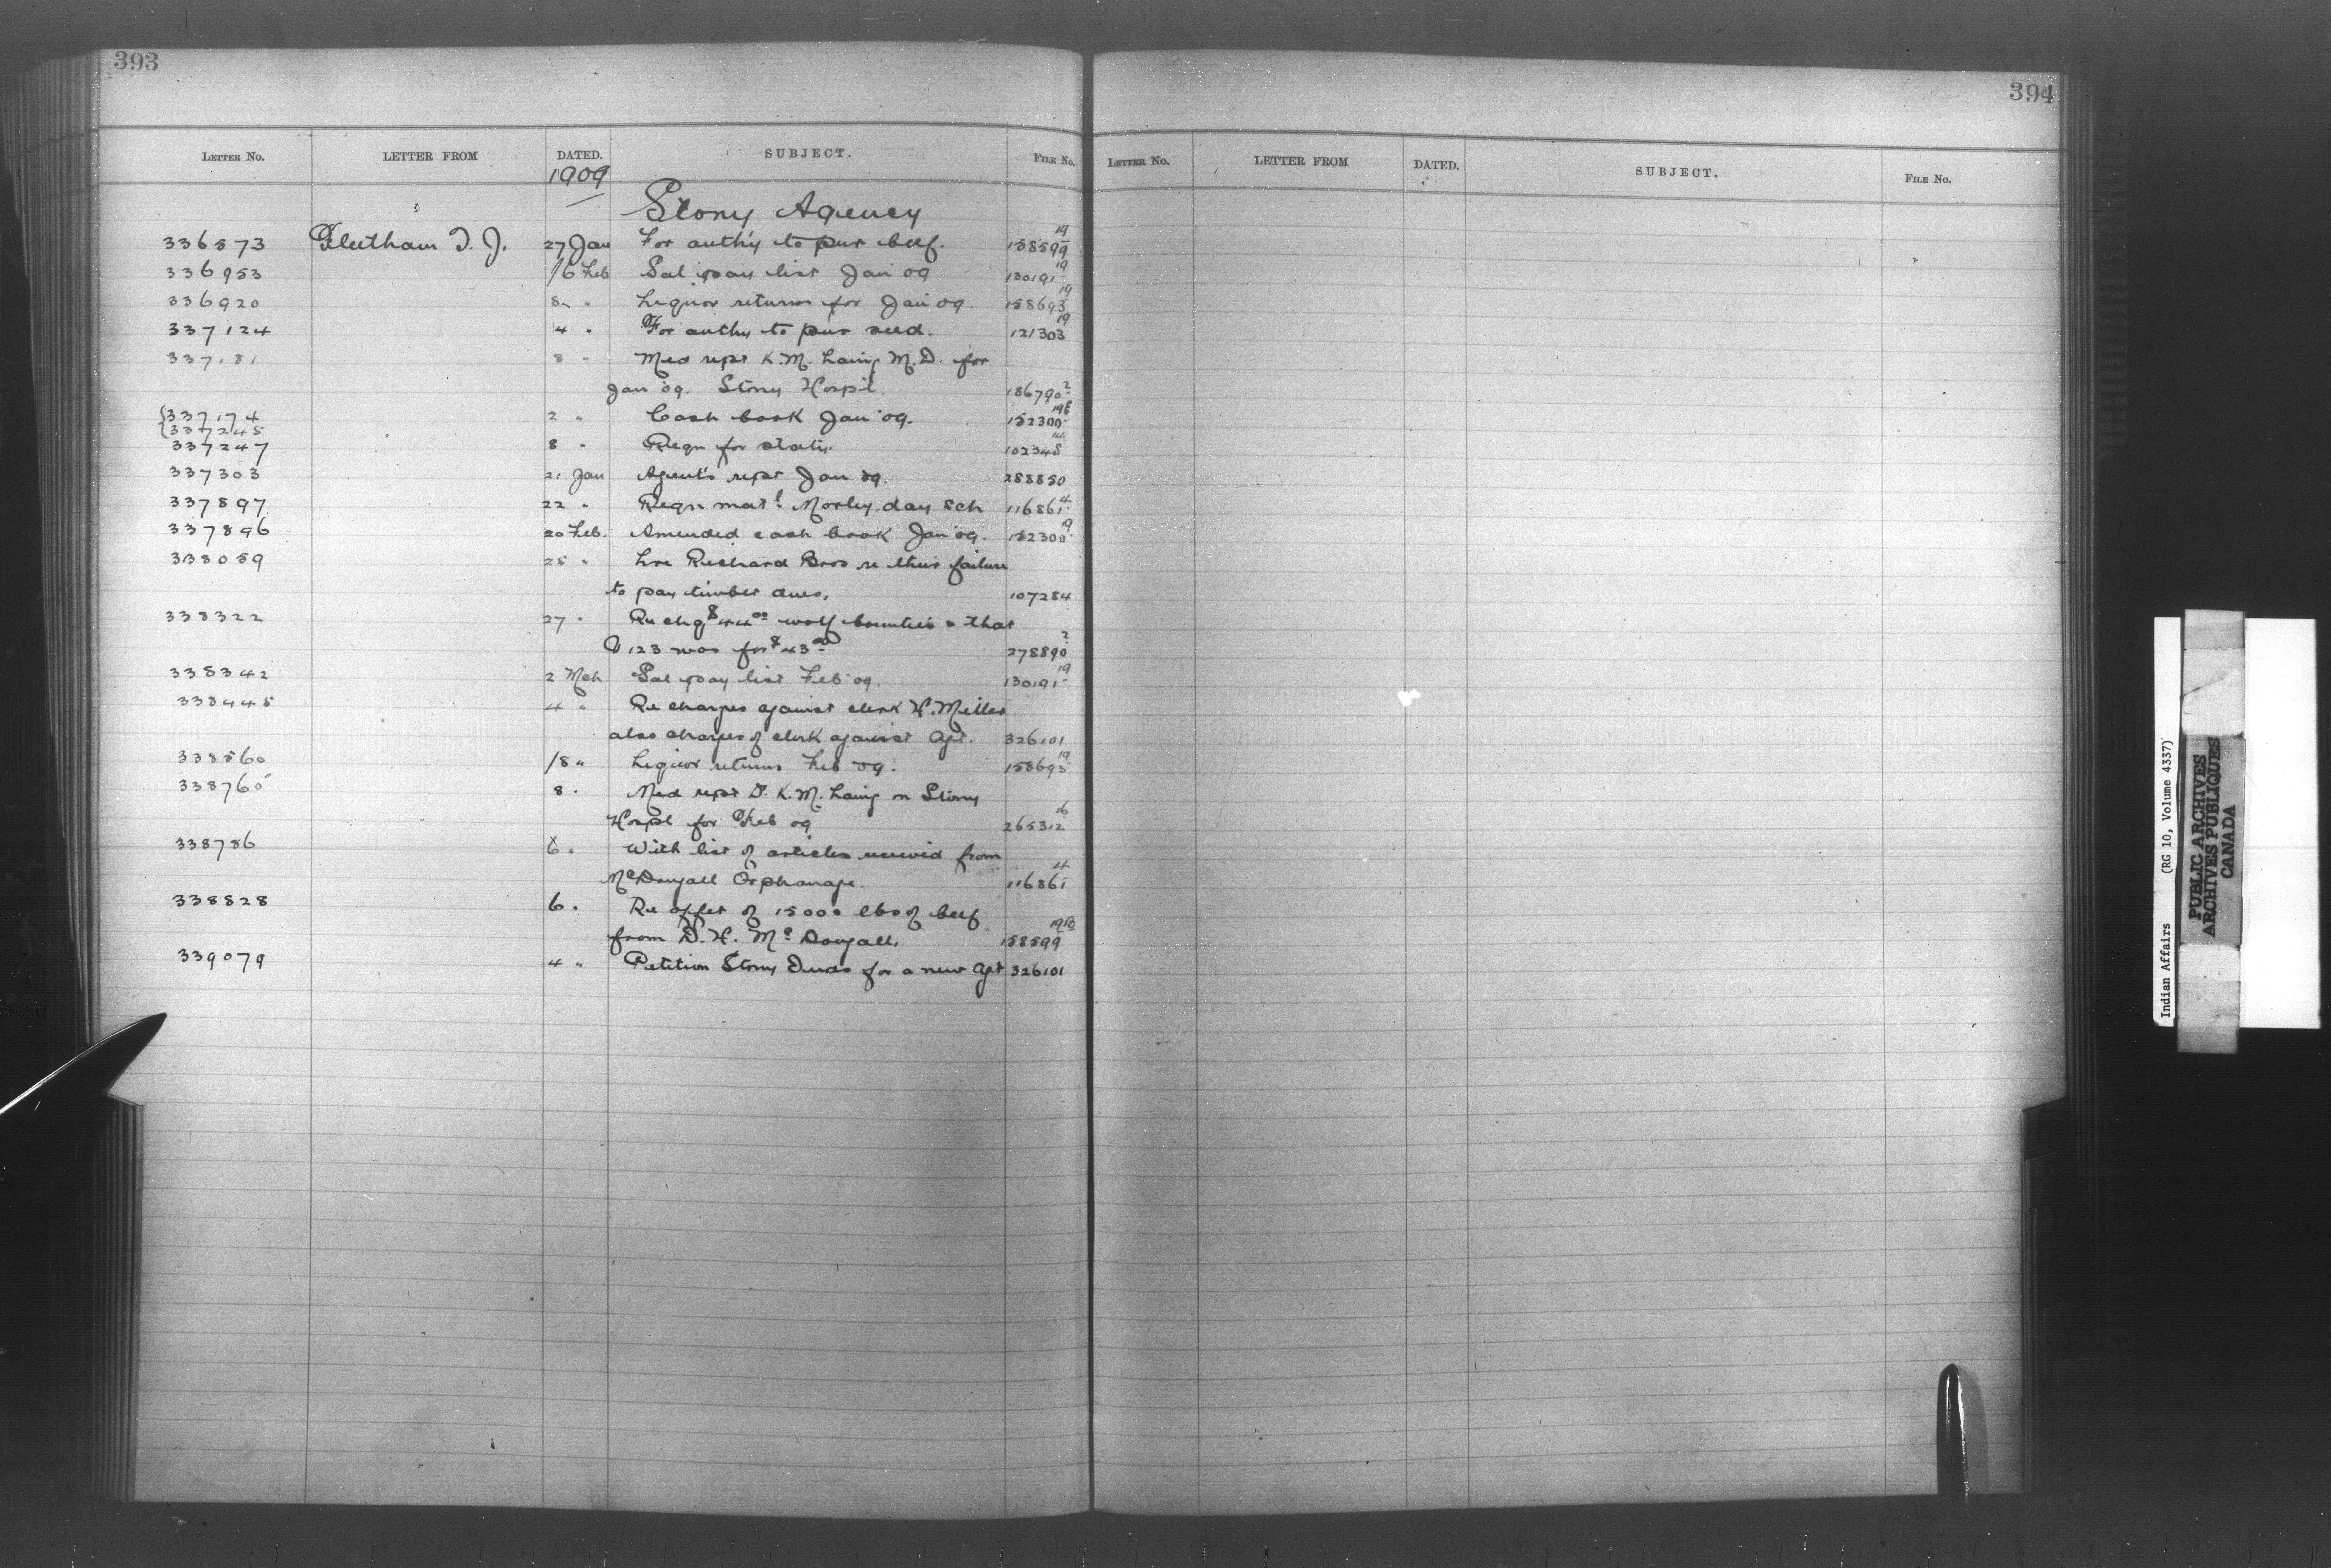 393
394
LETTER No. LETTER FROM DATED. SUBJECT. FILE No.
LETTER No. LETTER FROM DATED. SUBJECT. FILE No.
1909
Stony Agency
336573 Fleetham T. J. 27 Jan For auth'y to pur beef. 158599 19
336953 16 Feb Sal pay list Jan 09 130191 19
336920 8 " Liquor returns for Jan 09. 158693 19
337124 4 " For authy to pur seed. 121303 19
337181 8 " Med rept K.M. Laing M.D. for
Jan 09. Stony Hospl. 186790 2
337174 2 " Cash book Jan 09. 152300
337245
337247 8 " Reqn for staty. 102345 14
337303 21 Jan Agent's rept Jan 09. 288850
337897 22 " Reqn matl. Morley day sch 116861 4
337896 20 Feb. Amended cash book Jan 09. 152300 19
338059 25 " Lre Richard Bros re their failure
to pay timber dues. 107284
338322 27 " Re chg $44.00 wolf bounties & that
V 123 was for $43.00 278890 2
338342 2 Mch Sal pay list Feb 09. 130191 19
338445 4 " Re charges against clerk H. Miller
also charges of clerk against Agt. 326101
338560 /8 " Liquor returns Feb 09. 158693 19
338760 8 " Med rept D. K.M. Laing on Stony
Hospl for Feb 09 265312 16
338786 6 " With list of articles received from
McDougall Orphanage. 116861 4
338828 6 " Re offer of 15000 lbs of beef
from D. H. McDougall. 158599
339079 4 " Petition Stony Inds for a new Agt 326101
Indian Affairs (RG 10, Volume 4337)
PUBLIC ARCHIVES
ARCHIVES PUBLIQUES
CANADA